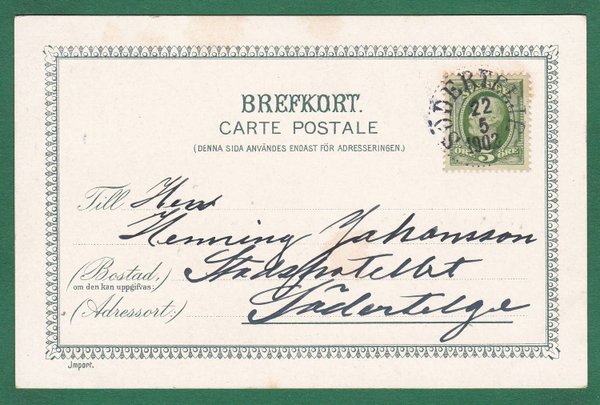 BREFKORT.
CARTE POSTALE
(DENNA SIDA ANVÄNDES ENDAST FÖR ADRESSERINGEN.)
SÖDERTELJE
22
5
1902
5 ÖRE
Till Herr
Henning Johansson
(Bostad,) Stadshotellet
om den kan uppgifvas:
(Adressort:) Södertelge
Import.